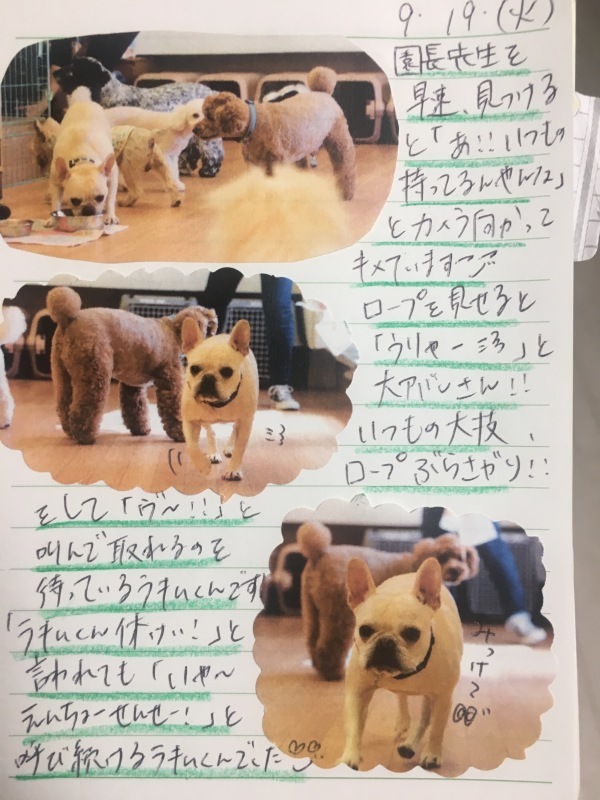 9.19.(火)
園長先生を
早速、見つける
と「あ!!いつもの
持ってるんやんか」
とカメラ向かって
キメています
ロープを見せると
「うりゃー」と
大アバレさん!!
いつもの大技、
ロープぶらさがり!!
をして「ヴ〜!!」と
叫んで取れるのを
待っているうきいくんです
「うきいくん休けい!」と
言われても「いや〜
えんちょーせんせー!」と
呼び続けるうきいくんでした
みっけ〜